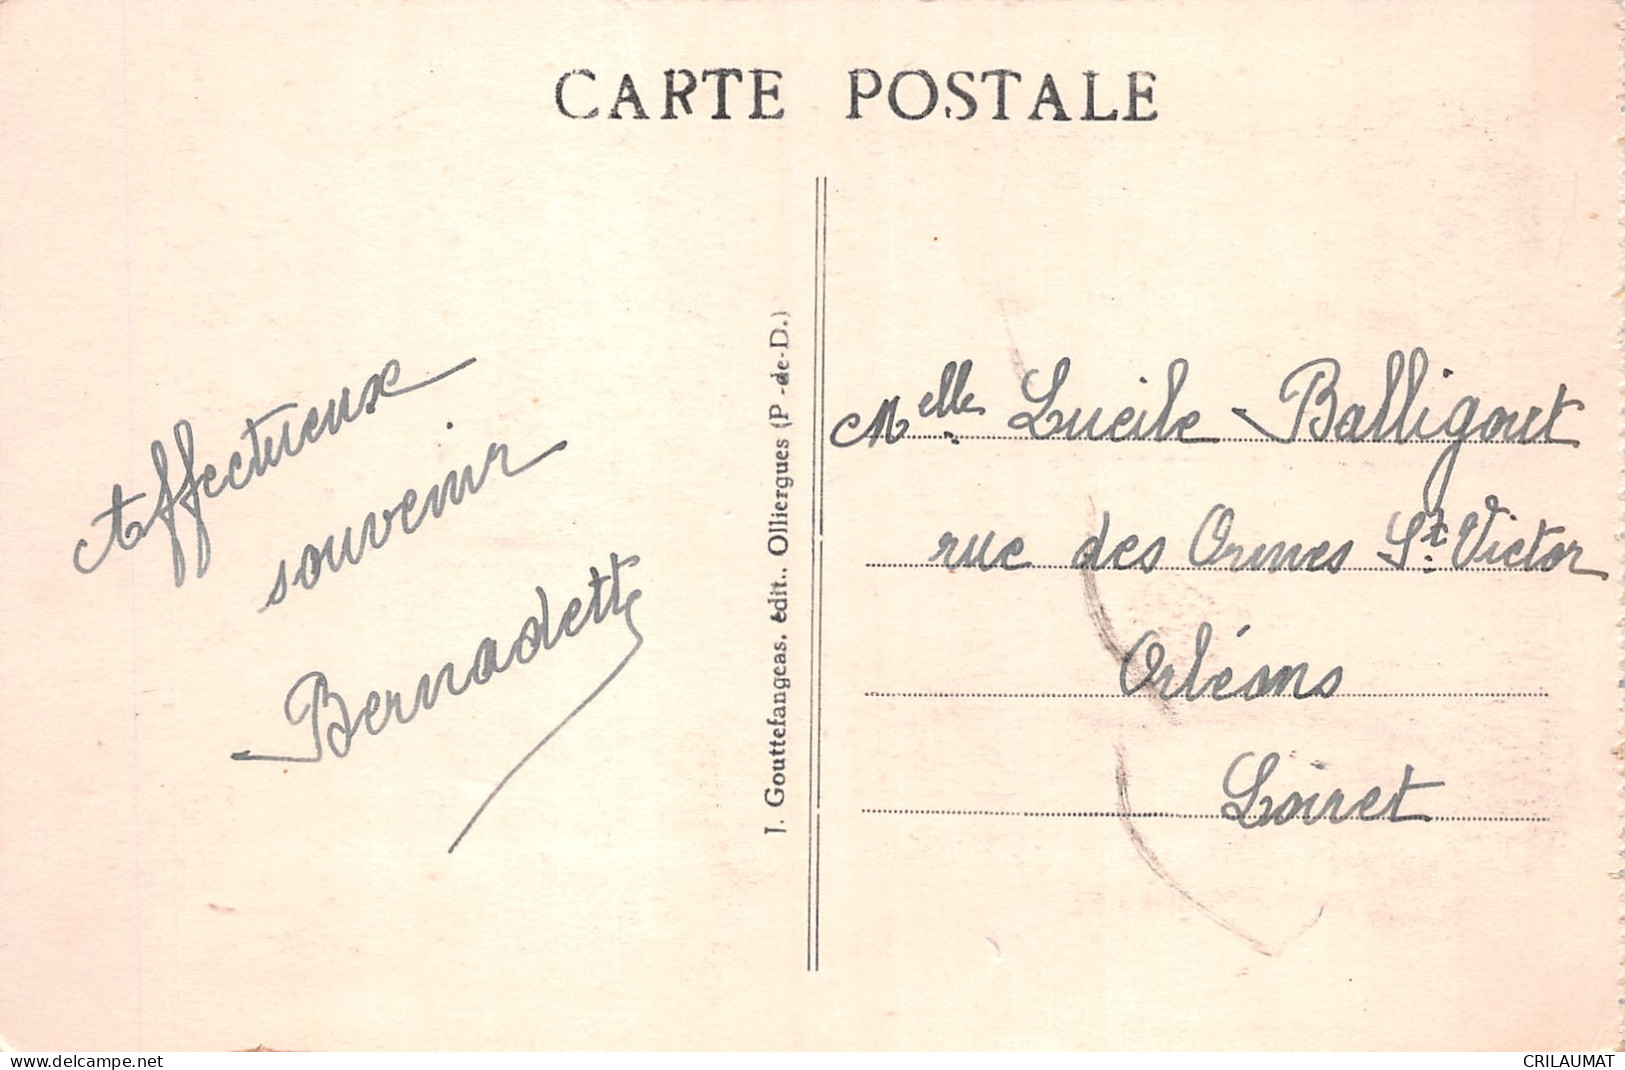 CARTE POSTALE
Affectueux
souvenir
Bernadette
J. Gouttefangeas, édit., Olliergues (P.-de-D.)
Melle Lucile Balligout
rue des Ormes St. Victor
Orléans
Loiret
www.delcampe.net
CRILAUMAT